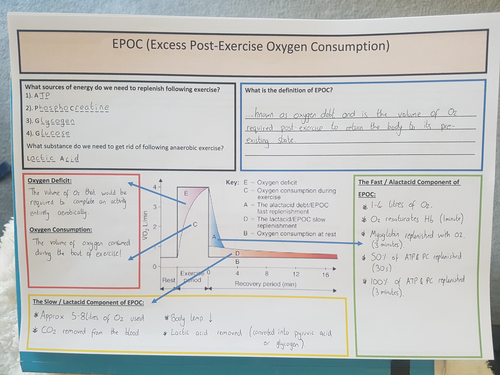 EPOC (Excess Post-Exercise Oxygen Consumption)
What sources of energy do we need to replenish following exercise?
1). ATP
2). Phosphocreatine
3). Glycogen
4). Glucose
What substance do we need to get rid of following anaerobic exercise?
Lactic Acid
What is the definition of EPOC?
Known as oxygen debt and is the volume of O2
required post exercise to return the body to its pre-
existing state.
Oxygen Deficit:
The volume of O2 that would be
required to complete an activity
entirely aerobically.
Oxygen Consumption:
The volume of oxygen consumed
during the bout of exercise!
Key: E = Oxygen deficit
C = Oxygen consumption during
exercise
A = The alactacid debt/EPOC
fast replenishment
D = The lactacid/EPOC slow
replenishment
B = Oxygen consumption at rest
VO2 L/min
4
3
2
1
0
E
C
A
D
B
0 4 8 12 16
Rest
Exercise
period
Recovery period (min)
The Fast / Alactacid Component of
EPOC:
1-4 litres of O2.
O2 resaturates Hb (1minute)
Myoglobin replenished with O2
(3 minutes)
50% of ATP & PC replenished
(30s)
100% of ATP & PC replenished
(3 minutes).
The Slow / Lactacid Component of EPOC:
Approx 5-8 litres of O2 used
CO2 removed from the blood
Body temp ↓
Lactic acid removed (converted into pyruvic acid
or glycogen)